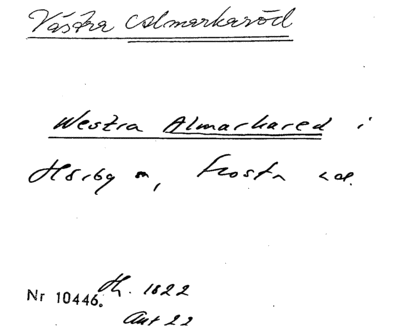 Västra Almarkaröd
Westra Almarkared i
Hörby sn, Frosta hd.
Nr 10446. Th. 1822
Ant 22